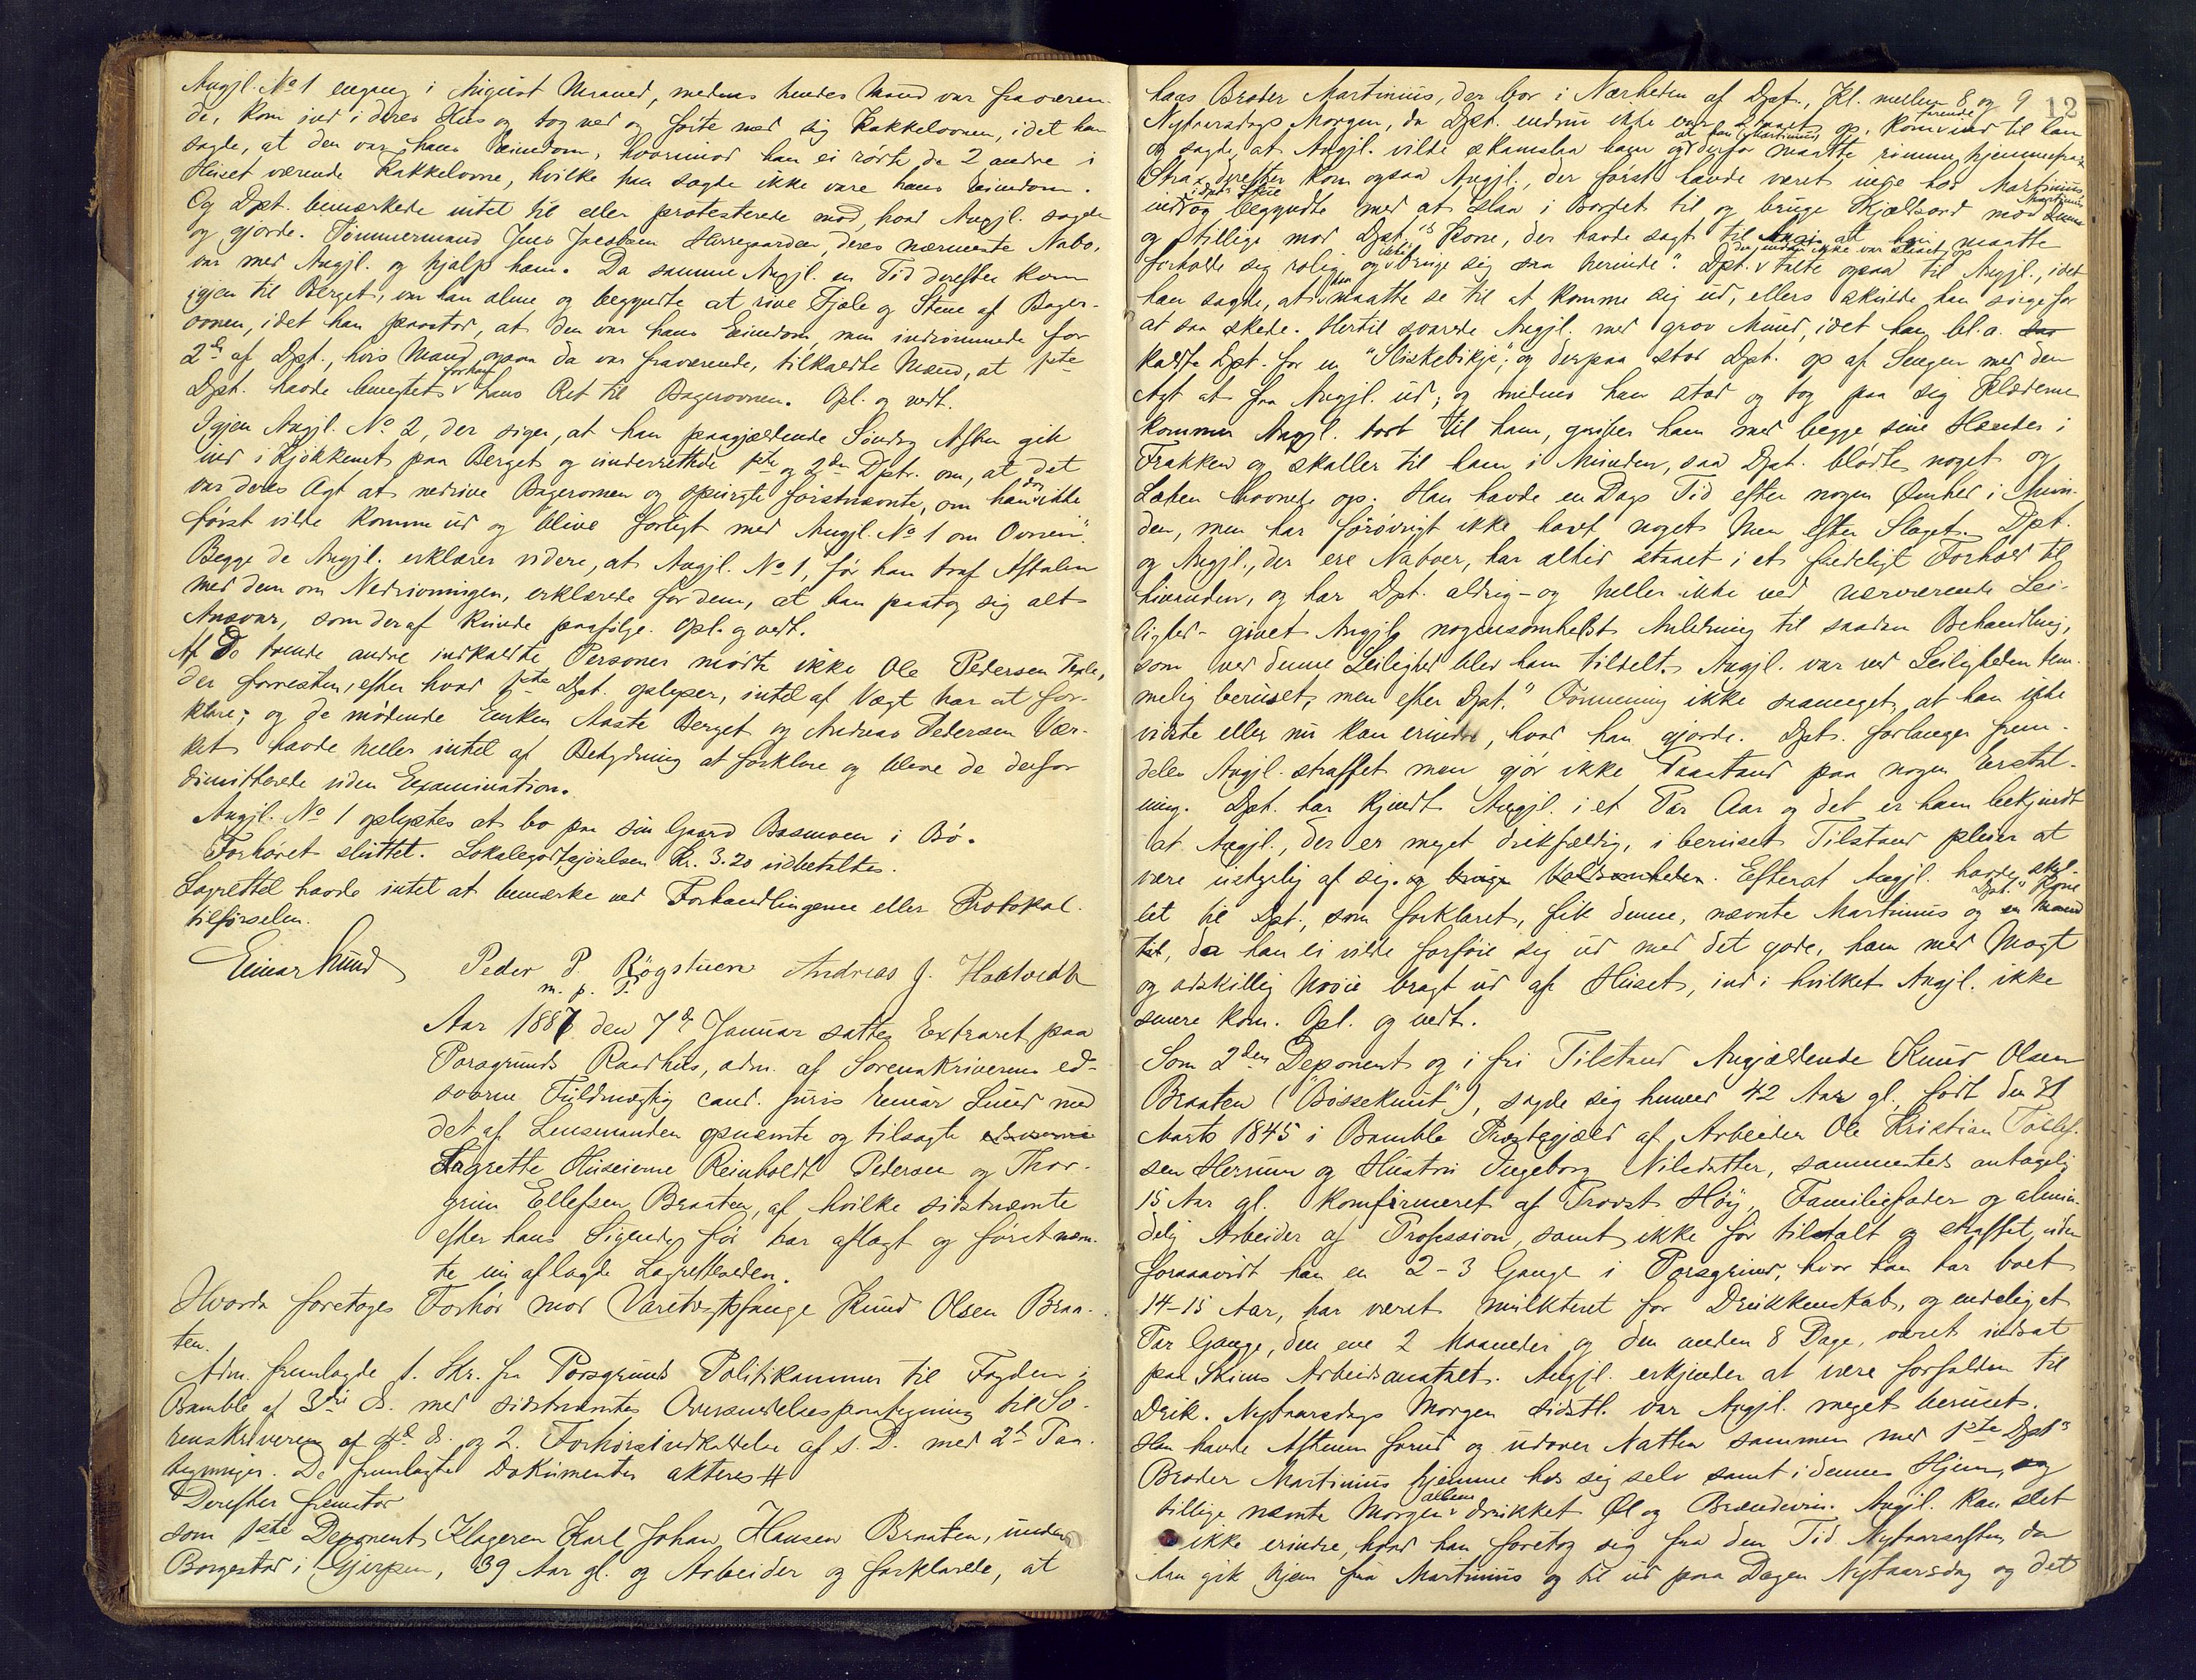 Angjl. No 1 engang i August Maaned, medens hendes Mand var fraværen-
de, kom ind i deres Hus og tog ned og førte med sig Kakkelovnen, idet han
sagde, at den var hans Eiendom, hvorimod han ei rørte de 2 andre i
Huset værende Kakkelovne, hvilke han sagde ikke vare hans Eiendom.
Og Dpt. bemærkede intet til eller protesterede mod, hvad Angjl. sagde
og gjorde. Tømmermand Jens Jacobsen Herregaarden, deres nærmeste Nabo,
var med Angjl. og hjalp ham. Da samme Angjl. en Tid derefter kom
igjen til Berget, var han alene og begyndte at rive Fjæle og Stene af Bager-
ovnen, idet han paastod, at den var hans Eiendom, men indrømmede for
2de af Dpt., hvis Mand ogsaa da var fraværende, tilkaldte Mænd, at 1ste
Dpt. havde benegtet forhen hans Ret til Bagerovnen. Opl. og vedt.
Igjen Angjl. No 2, der siger, at han paagjældende Søndag Aften gik
ind i Kjøkkenet paa Berget og underrettede 1ste og 2den Dpt. om, at det
var deres Agt at nedrive Bagerovnen og spurgte førstnævnte, om han da ikke
først vilde komme ud og blive forligt med Angjl. No 1 om Ovnen".
Begge de Angjl. erklærer videre, at Angjl. No 1, før han traf Aftalen
med dem om Nedrivningen, erklærede for dem, at han paatog sig alt
Ansvar, som deraf kunde paafølge. Opl. og vedt.
Af De trende andre indkaldte Personer mødte ikke Ole Pedersen
der forresten, efter hvad 1ste Dpt. oplyser, intet af Vægt har at for-
klare; og de mødende Enken Aaste Berget og Andreas Pedersen Vær-
ket havde heller intet af Betydning at forklare og bleve de derfor
dimitterede uden Examination.
Angjl. No 1 oplystes at bo paa sin Gaard Basmoen i Bø.
Forhøret sluttet. Lokalegodtgjørelsen Kr. 3.20 udbetaltes.
Lagrettet havde intet at bemærke ved Forhandlingerne eller Protokol-
tilførselen.
Einar Lund Peder P. Røgstuen Andreas J.
m. p. P.
Aar 1887 den 7de Januar sattes Extraret paa
Porsgrunds Raadhus, adm. af Sorenskriverens ed-
svorne Fuldmægtig cand. juris Einar Lund med
det af Lensmanden opnævnte og tilsagte
Lagrette Huseierne Reinholdt Pedersen og Thor-
grim Ellefsen Braaten, af hvilke sidstnævnte
efter hans Sigende før har aflagt og førstnævn-
te nu aflagde Lagretteeden.
Hvorda foretoges Forhør mod Varetægtsfange Knud Olsen Braa-
ten.
Adm. fremlagde 1. Skr. fra Porsgrunds Politikammer til Fogden i
Bamble af 3die ds. med sidstnævntes Oversendelsespaategning til So-
renskriveren af 4de ds. og 2. Forhørsindkaldelse af s. D. med 2de Paa-
tegninger. De fremlagte Dokumenter akteres #
Derefter fremstod
som 1ste Deponent Klageren Karl Johan Hansen Braaten, under
Borgestad i Gjerpen, 39 Aar gl. og Arbeider og forklarede, at
12
hans Broder Martinius, der bor i Nærheden af Dpt., Kl. mellem 8 og 9
Nytaarsdags Morgen, da Dpt. endnu ikke var staaet op, kom farende ind til ham
og sagde, at Angjl. vilde skamslaa ham og at han (Martinius) derfor maatte rømme hjemmefra.
Strax derefter kom ogsaa Angjl., der først havde været inde hos Martinius
ind i Dpts Stue og begyndte med at slaa i Bordet til og bruge Skjældsord mod Martinius
og tillige mod Dpt."s Kone, der havde sagt til Angjl. at han maatte
forholde sig rolig og ikke bruge sig saa herinde". Dpt. der endnu ikke var staaet op talte ogsaa til Angjl., idet
han sagde, at han maatte se til at komme sig ud, ellers skulde han sørge for
at saa skede. Hertil svarede Angjl. med grov Mund, idet han bl. a.
kaldte Dpt. for en "Sliskebikje", og derpaa stod Dpt. op af Sengen med den
Agt at faa Angjl. ud; og medens han stod og tog paa sig Klæderne
kommer Angjl. bort til ham, griber ham med begge sine Hænder i
Frakken og skaller til ham i Munden, saa Dpt. blødte noget og
Læben hovnede op. Han havde en Dags Tid efter nogen Ømhed i Mun-
den, men har forøvrigt ikke havt noget Men efter Slaget. Dpt.
og Angjl., der ere Naboer, har altid staaet i et fredeligt Forhold til
hinanden, og har Dpt. aldrig - og heller ikke ved nærværende Lei-
lighed - givet Angjl. nogensomhelst Anledning til saadan Behandling,
som ved denne Leilighed blev ham tildelt. Angjl. var ved Leiligheden tem-
melig beruset, men efter Dpt." Formening ikke saameget, at han ikke
vidste eller nu kan erindre, hvad han gjorde. Dpt. forlanger frem-
deles Angjl. straffet men gjør ikke Paastand paa nogen Erstat-
ning. Dpt. har kjendt Angjl. i et Par Aar og det er ham bekjendt
at Angjl., der er meget drikfældig, i beruset Tilstand pleier at
være ustyrlig af sig. og bruge Voldsomheder. Efterat Angjl. havde skal-
let til Dpt., som forklaret, fik denne, nævnte Martinius og Dpt." Kone
til, da han ei vilde forføie sig ud med det gode, ham med Magt
og adskillig Møie bragt ud af Huset, ind i hvilket Angjl. ikke
senere kom. Opl. og vedt.
Som 2den Deponent og i fri Tilstand Angjældende Knud Olsen
Braaten ("Bøsseknut"), sagde sig henved 42 Aar gl., født den 31
Marts 1845 i Bamble Præstegjæld af Arbeider Ole Kristian
sen Herum og Hustru Ingeborg Nilsdatter, sammesteds antagelig
15 Aar gl. konfirmeret af Provst Høy, Familiefader og almin-
delig Arbeider af Profession, samt ikke før tiltalt og straffet, uden
forsaavidt han en 2-3 Gange i Porsgrund, hvor han har boet
14-15 Aar, har været mulkteret for Drukkenskab, og endelig et
Par Gange, den ene 2 Maaneder og den anden 8 Dage, været indsat
paa Skiens Arbeidsanstalt. Angjl. erkjender at være forfalden til
Drik. Nytaarsdags Morgen sidstl. var Angjl. meget beruset.
Han havde Aftenen forud og udover Natten sammen med 1ste Dpt"s
Broder Martinius hjemme hos sig selv samt i dennes Hjem, og
tillige nævnte Morgen allene drukket Øl og Brændevin. Angjl. kan slet
ikke erindre, hvad han foretog sig fra den Tid Nytaarsaften, da
han gik hjem fra Martinius og til ud paa Dagen Nytaarsdag og det